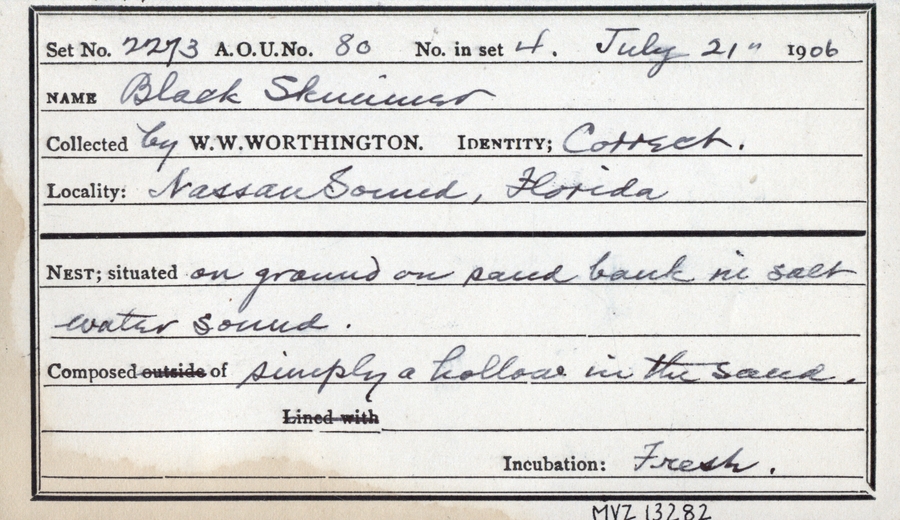 Set No. 2273 A.O.U.No. 80 No. in set 4. July 21" 1906
NAME Black Skimmer
Collected by W.W.WORTHINGTON. IDENTITY; Correct.
Locality: Nassau Sound, Florida
NEST; situated on ground on sand bank in salt
water sound.
Composed outside of simply a hollow in the sand.
Lined with
Incubation: Fresh.
MVZ 13282